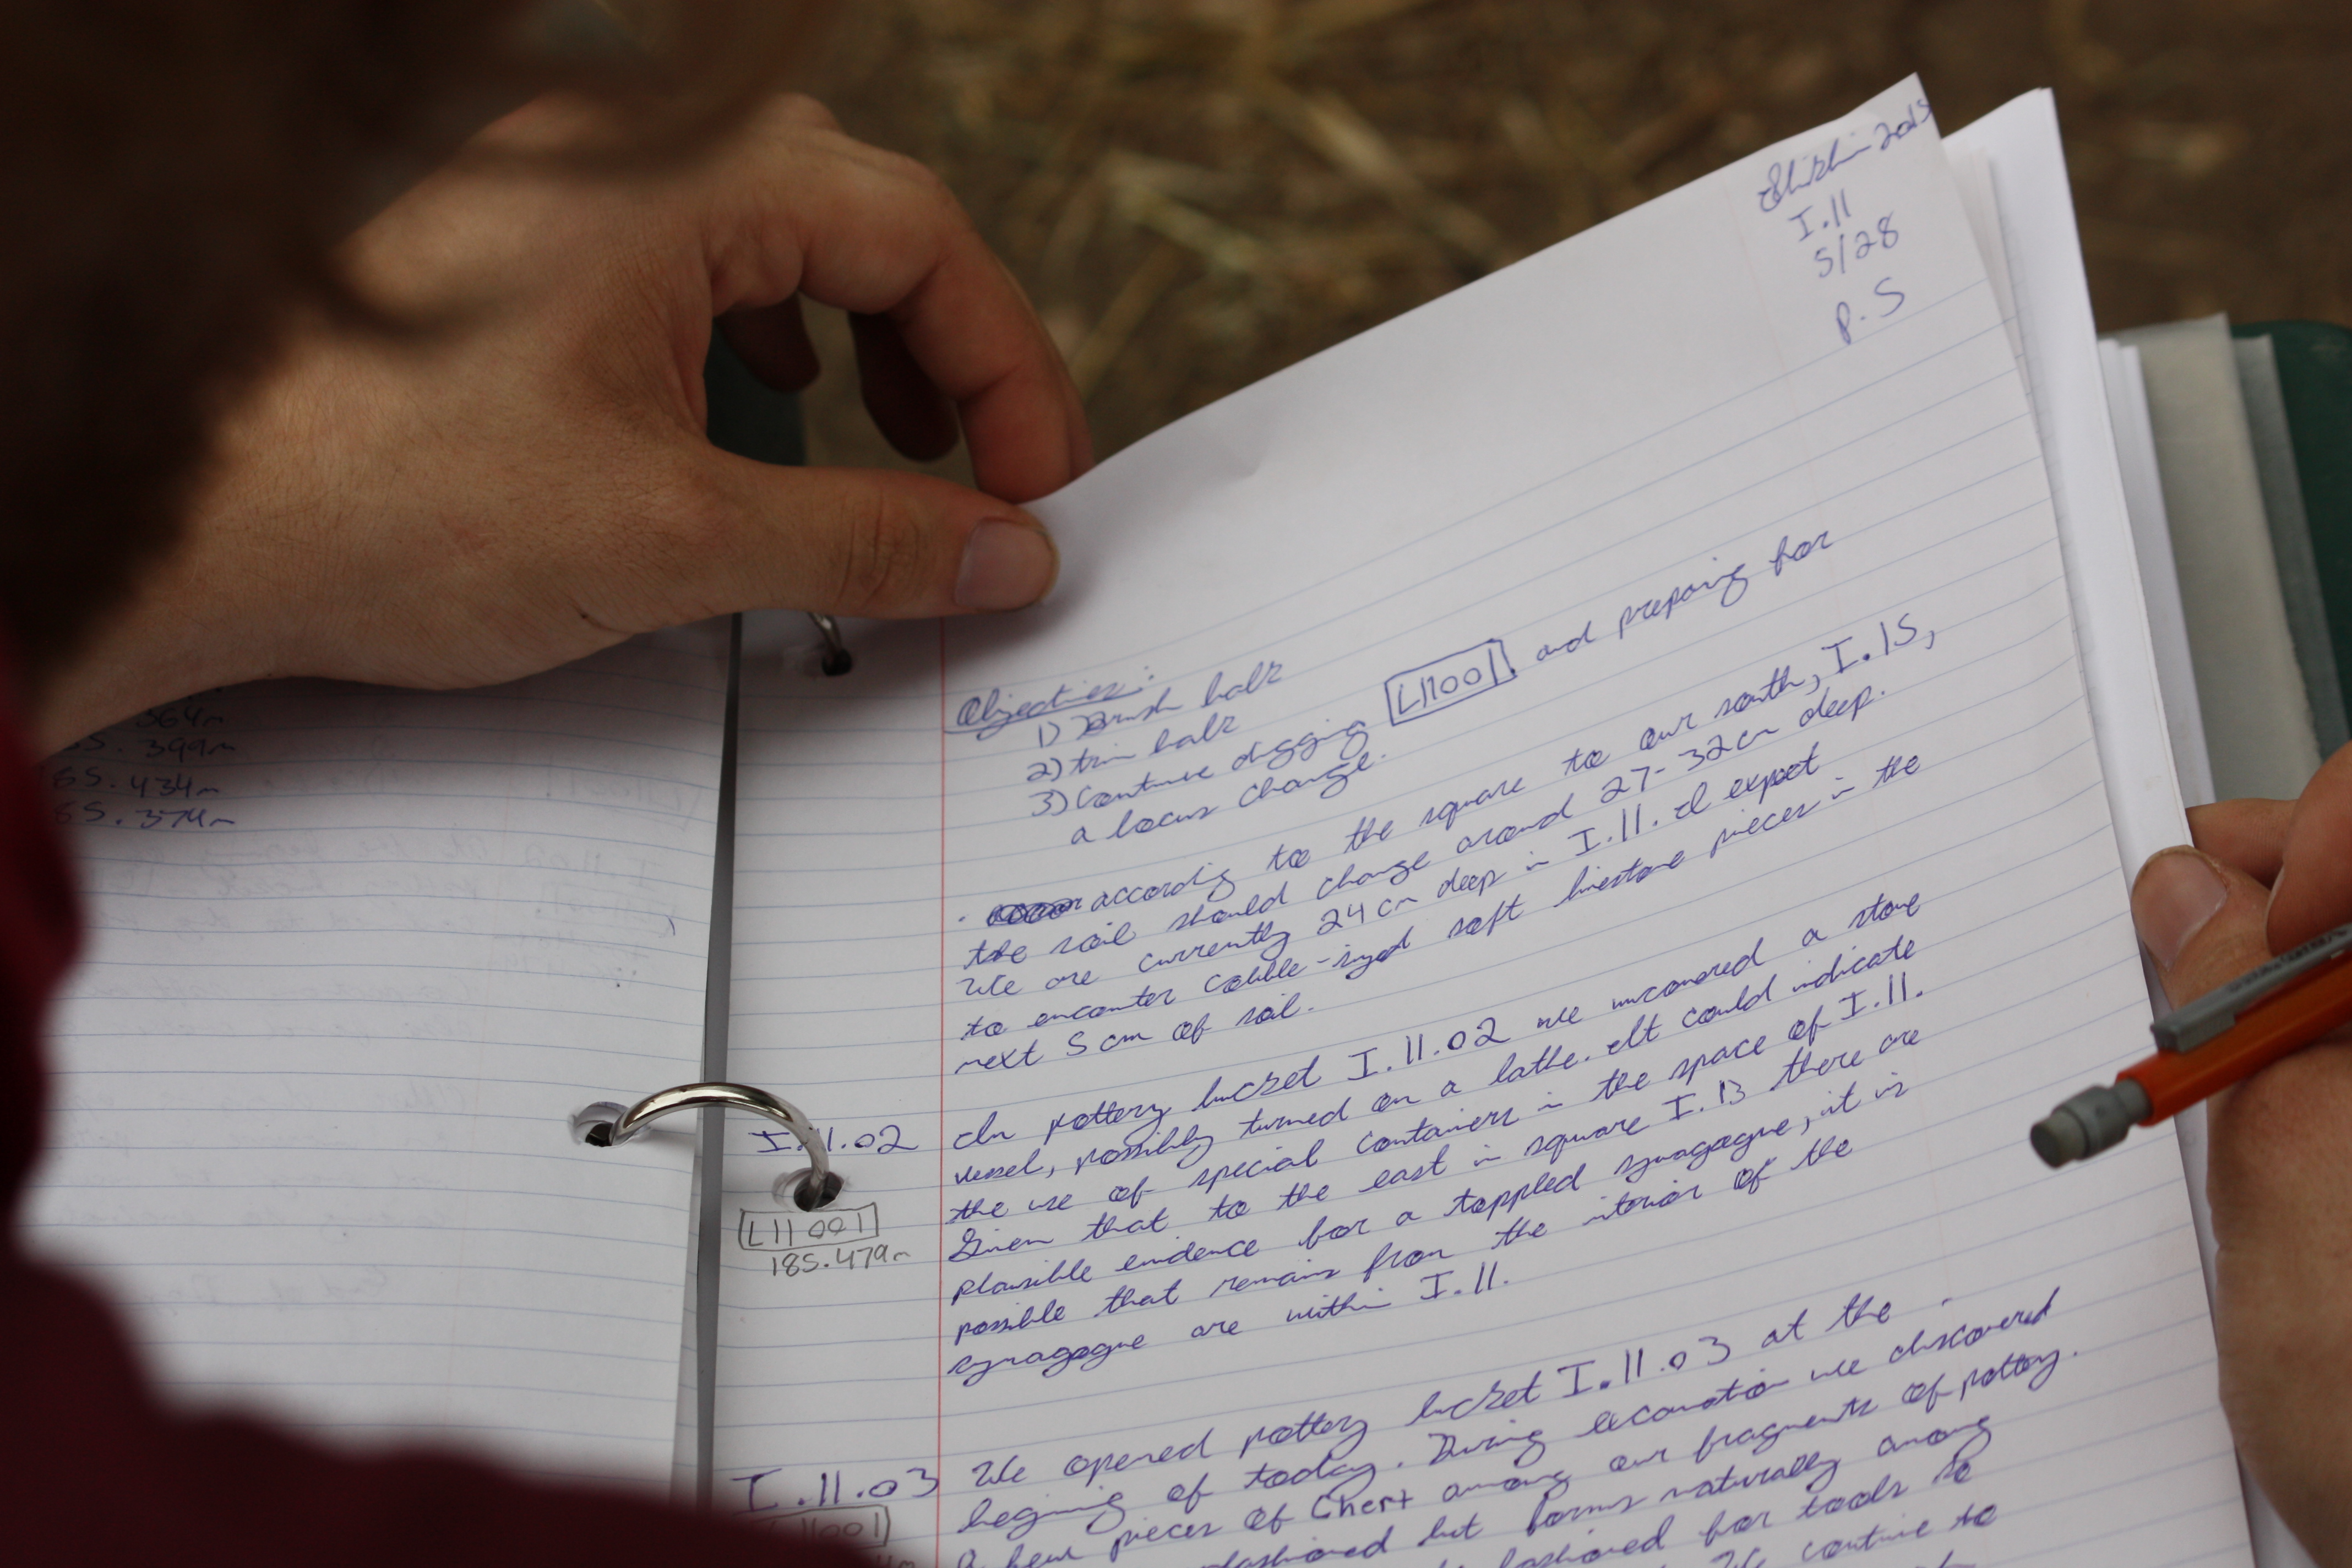 Shikhin 2013
I.11
5/28
P. 5
364m
85.399m
85.434m
85.374m
Objectives:
1) Brush balk
2) trim balk
3) Continue digging L11001 and preparing for
a locus change.
. according to the square to our south, I.15,
the soil should change around 27-32cm deep.
We are currently 24cm deep in I.11. I expect
to encounter cobble-sized soft limestone pieces in the
next 5cm of soil.
I.11.02 In pottery bucket I.11.02 we uncovered a stone
vessel, possibly turned on a lathe. It could indicate
the use of special containers in the space of I.11.
L11001 Given that to the east in square I.13 there are
185.479m plausible evidence for a toppled synagogue, it is
possible that remains from the interior of the
synagogue are within I.11.
I.11.03 We opened pottery bucket I.11.03 at the
begining of today. During excavation we discovered
11001 a few pieces of Chert among our fragments of pottery.
fashioned but forms naturally among
fashioned for tools so
We continue to